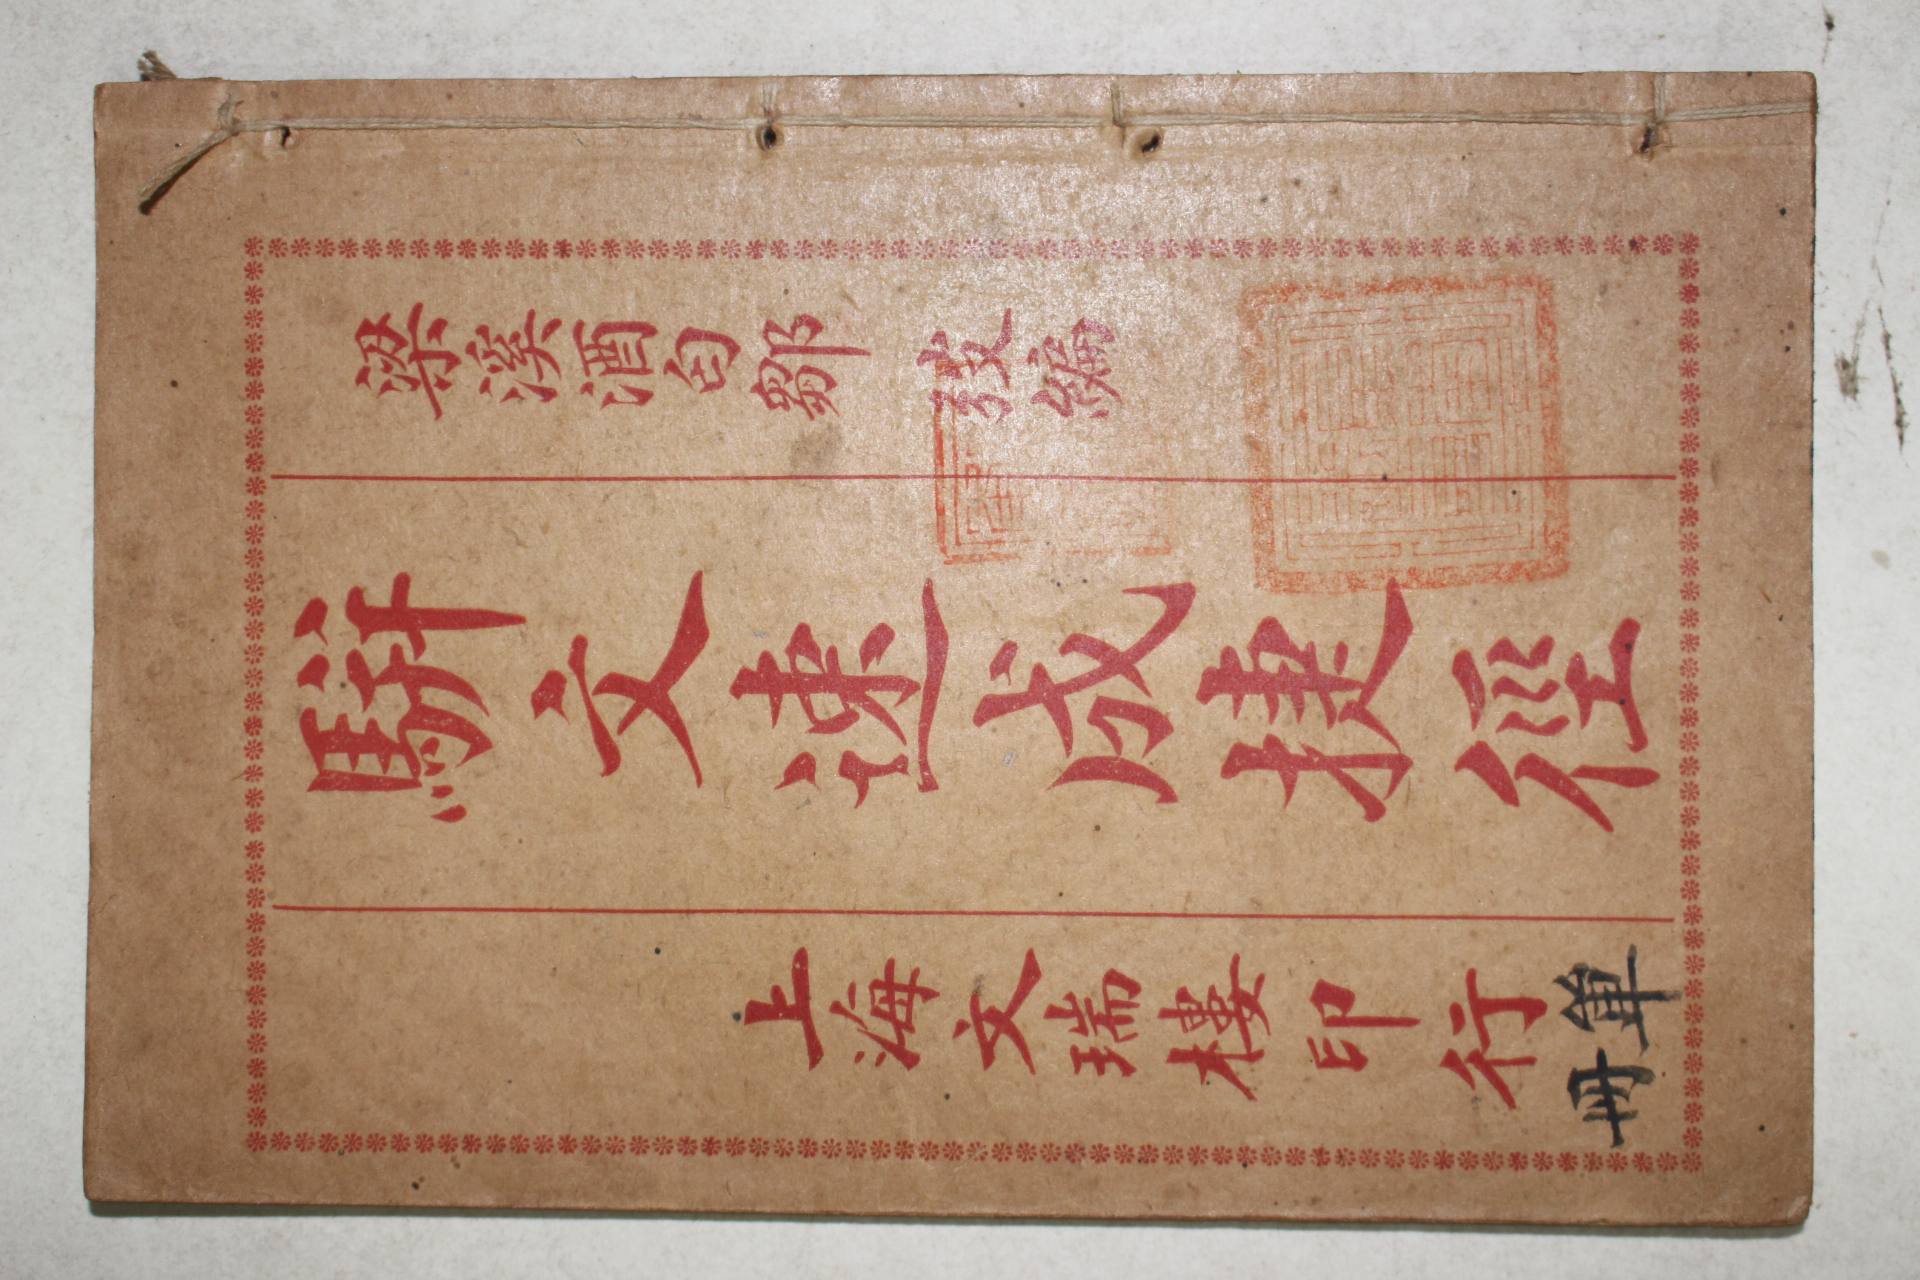 梁溪酒匄鄒弢編
駢文速成捷徑
上海文瑞樓印行
單冊